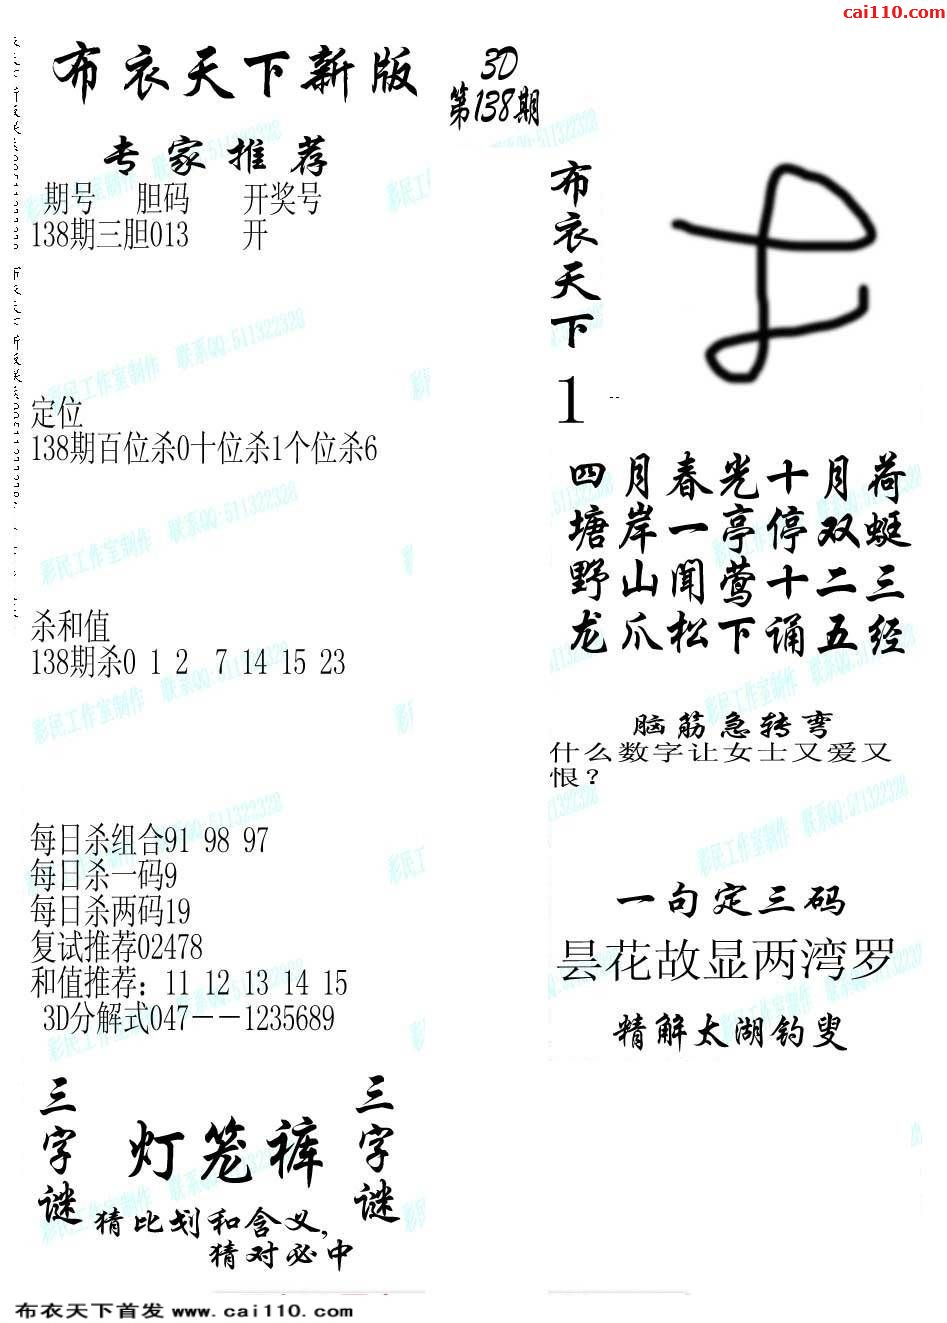 cai110.com
布衣天下新版
3D
第138期
专家推荐
期号 胆码 开奖号
138期三胆013 开
定位
138期百位杀0十位杀1个位杀6
杀和值
138期杀0 1 2 7 14 15 23
每日杀组合91 98 97
每日杀一码9
每日杀两码19
复试推荐02478
和值推荐：11 12 13 14 15
3D分解式047－－1235689
三字谜
灯笼裤
三字谜
猜比划和含义，
猜对必中
布衣天下
1
四月春光十月荷
塘岸一亭停双蜓
野山闻莺十二三
龙爪松下诵五经
脑筋急转弯
什么数字让女士又爱又
恨？
一句定三码
昙花故显两湾罗
精解太湖钓叟
彩民工作室制作 联系QQ:511322328
布衣天下首发 www.cai110.com